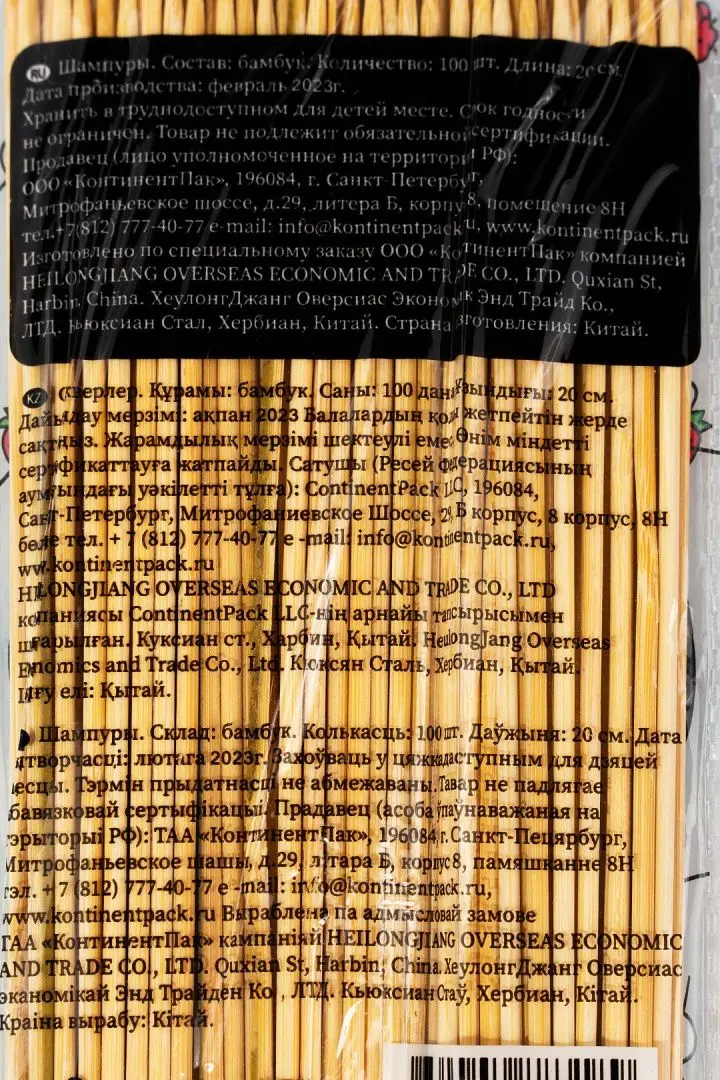 RU Шампуры. Состав: бамбук. Количество: 100 шт. Длина: 20 см.
Дата производства: февраль 2023г.
Хранить в труднодоступном для детей месте. Срок годности
не ограничен. Товар не подлежит обязательной сертификации.
Продавец (лицо уполномоченное на территории РФ):
ООО «КонтинентПак», 196084, г. Санкт-Петербург,
Митрофаньевское шоссе, д.29, литера Б, корпус 8, помещение 8Н
тел.+7(812) 777-40-77 e-mail: info@kontinentpack.ru, www.kontinentpack.ru
Изготовлено по специальному заказу ООО «КонтинентПак» компанией
HEILONGJIANG OVERSEAS ECONOMIC AND TRADE CO., LTD. Quxian St,
Harbin, China. ХеулонгДжанг Оверсиас Эконом Энд Трайд Ко.,
ЛТД. Кьюксиан Стал, Хербиан, Китай. Страна изготовления: Китай.
KZ Құрамы: бамбук. Саны: 100 дана. Ұзындығы: 20 см.
Дайындау мерзімі: ақпан 2023 Балалардың қолы жетпейтін жерде
сақтаңыз. Жарамдылық мерзімі шектеулі емес. Өнім міндетті
сертификаттауға жатпайды. Сатушы (Ресей Федерациясының
аумағындағы уәкілетті тұлға): ContinentPack LLC, 196084,
Санкт-Петербург, Митрофаниевское Шоссе, 29, Б корпус, 8 корпус, 8Н
бөлме тел. + 7 (812) 777-40-77 e -mail: info@kontinentpack.ru,
www.kontinentpack.ru
HEILONGJIANG OVERSEAS ECONOMIC AND TRADE CO., LTD
компаниясы ContinentPack LLC-нің арнайы тапсырысымен
шығарылған. Куксиан ст., Харбин, Қытай. HeulongJang Overseas
Enomics and Trade Co., Ltd. Кюксян Сталь, Хербиан, Қытай.
Шығу елі: Қытай.
Шампуры. Склад: бамбук. Колькасць: 100 шт. Даўжыня: 20 см. Дата
вытворчасці: лютага 2023г. Захоўваць у цяжкадаступным для дзяцей
месцы. Тэрмін прыдатнасці не абмежаваны. Тавар не падлягае
абавязковай сертыфікацыі. Прадавец (асоба ўпаўнаважаная на
тэрыторыі РФ): ТАА «КонтинентПак», 196084, г. Санкт-Пецярбург,
Митрофаньевское шашы, д.29, літара Б, корпус 8, памяшканне 8Н
тэл. +7 (812) 777-40-77 e -mail: info@kontinentpack.ru,
www.kontinentpack.ru Выраблена па адмысловай замове
ТАА «КонтинентПак» кампаніяй HEILONGJIANG OVERSEAS ECONOMIC
AND TRADE CO., LTD. Quxian St, Harbin, China. ХеулонгДжанг Оверсиас
эканомікай Энд Трайден Ко., ЛТД. Кьюксиан Стаў, Хербиан, Кітай.
Краіна вырабу: Кітай.